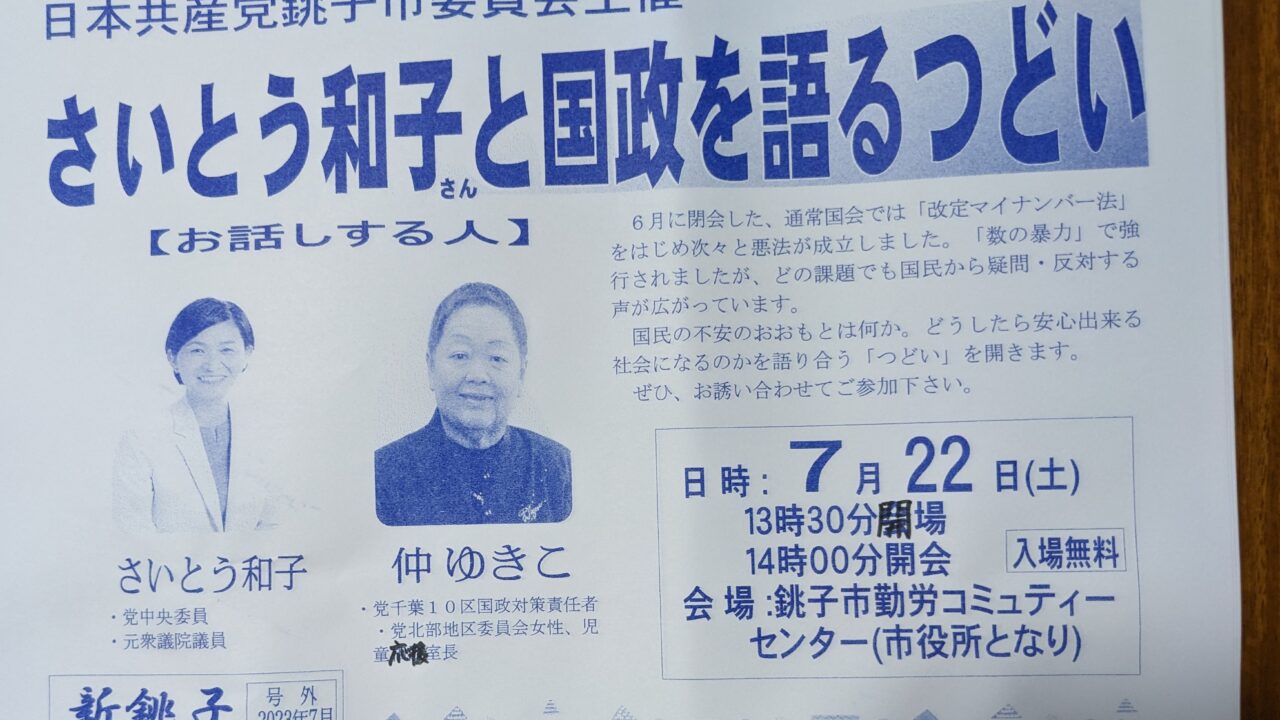 日本共産党銚子市委員会主催
さいとう和子さんと国政を語るつどい
【お話しする人】
6月に閉会した、通常国会では「改定マイナンバー法」
をはじめ次々と悪法が成立しました。「数の暴力」で強
行されましたが、どの課題でも国民から疑問・反対する
声が広がっています。
国民の不安のおおもとは何か。どうしたら安心出来る
社会になるのかを語り合う「つどい」を開きます。
ぜひ、お誘い合わせてご参加下さい。
さいとう和子
・党中央委員
・元衆議院議員
仲 ゆきこ
・党千葉10区国政対策責任者
・党北部地区委員会女性、児
童応援室長
日時:7月22日(土)
13時30分開場
14時00分開会
入場無料
会場:銚子市勤労コミュティー
センター(市役所となり)
新銚子
号外
2023年7月